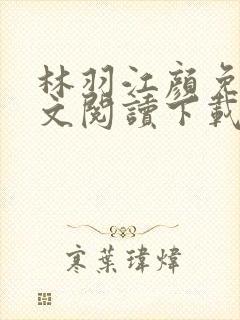 林羽江顏免
文閱讀下載
寒葉瑋煒